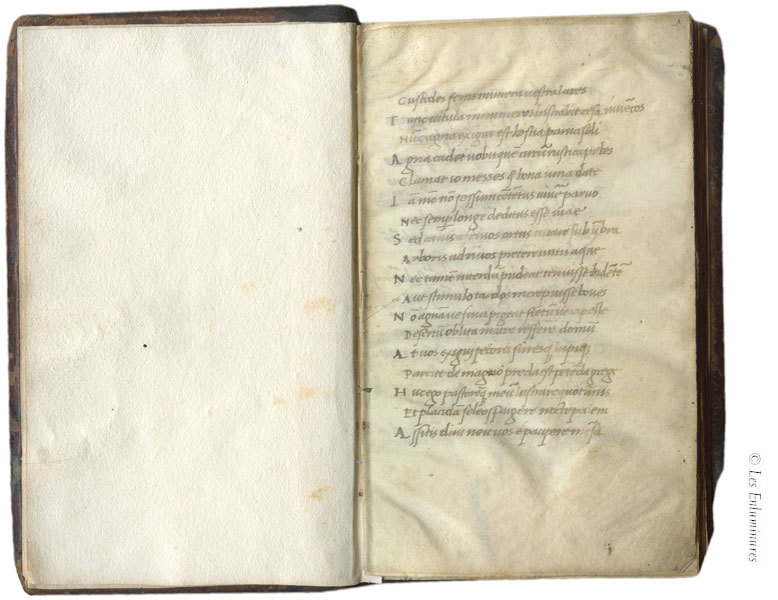 Custodes fertis munera vestra lares
Tunc vitula innumeros lustrabat cesa iuuēcos
Nūc agna exigui est hostia parua soli
Agna cadet uobis quē circū rustica pubes
Clamat io messes & bona uina date
Iā mō nō possum cōtētus uiuē paruo
Nec semp longe deditus esse uiae
Sed canis ortus sub ūbra
Arboris ad riuos pretereuntis aque
Nec tamē interdū pudeat tenuisse bidētē
Aut stimulo tardos increpuisse boues
Nō agnāue sinu pigeat fetūue capelle
Desertū oblita matre referre domū
At uos exigui pecoris fures lupiq
Parcite de magno preda est petēda grege
Huc ego pastorēq meū lustrare quotānis
Et placidā soleo spargere lacte palem
Assitis diui neu uos e paupere mēsa
© Les Enluminures